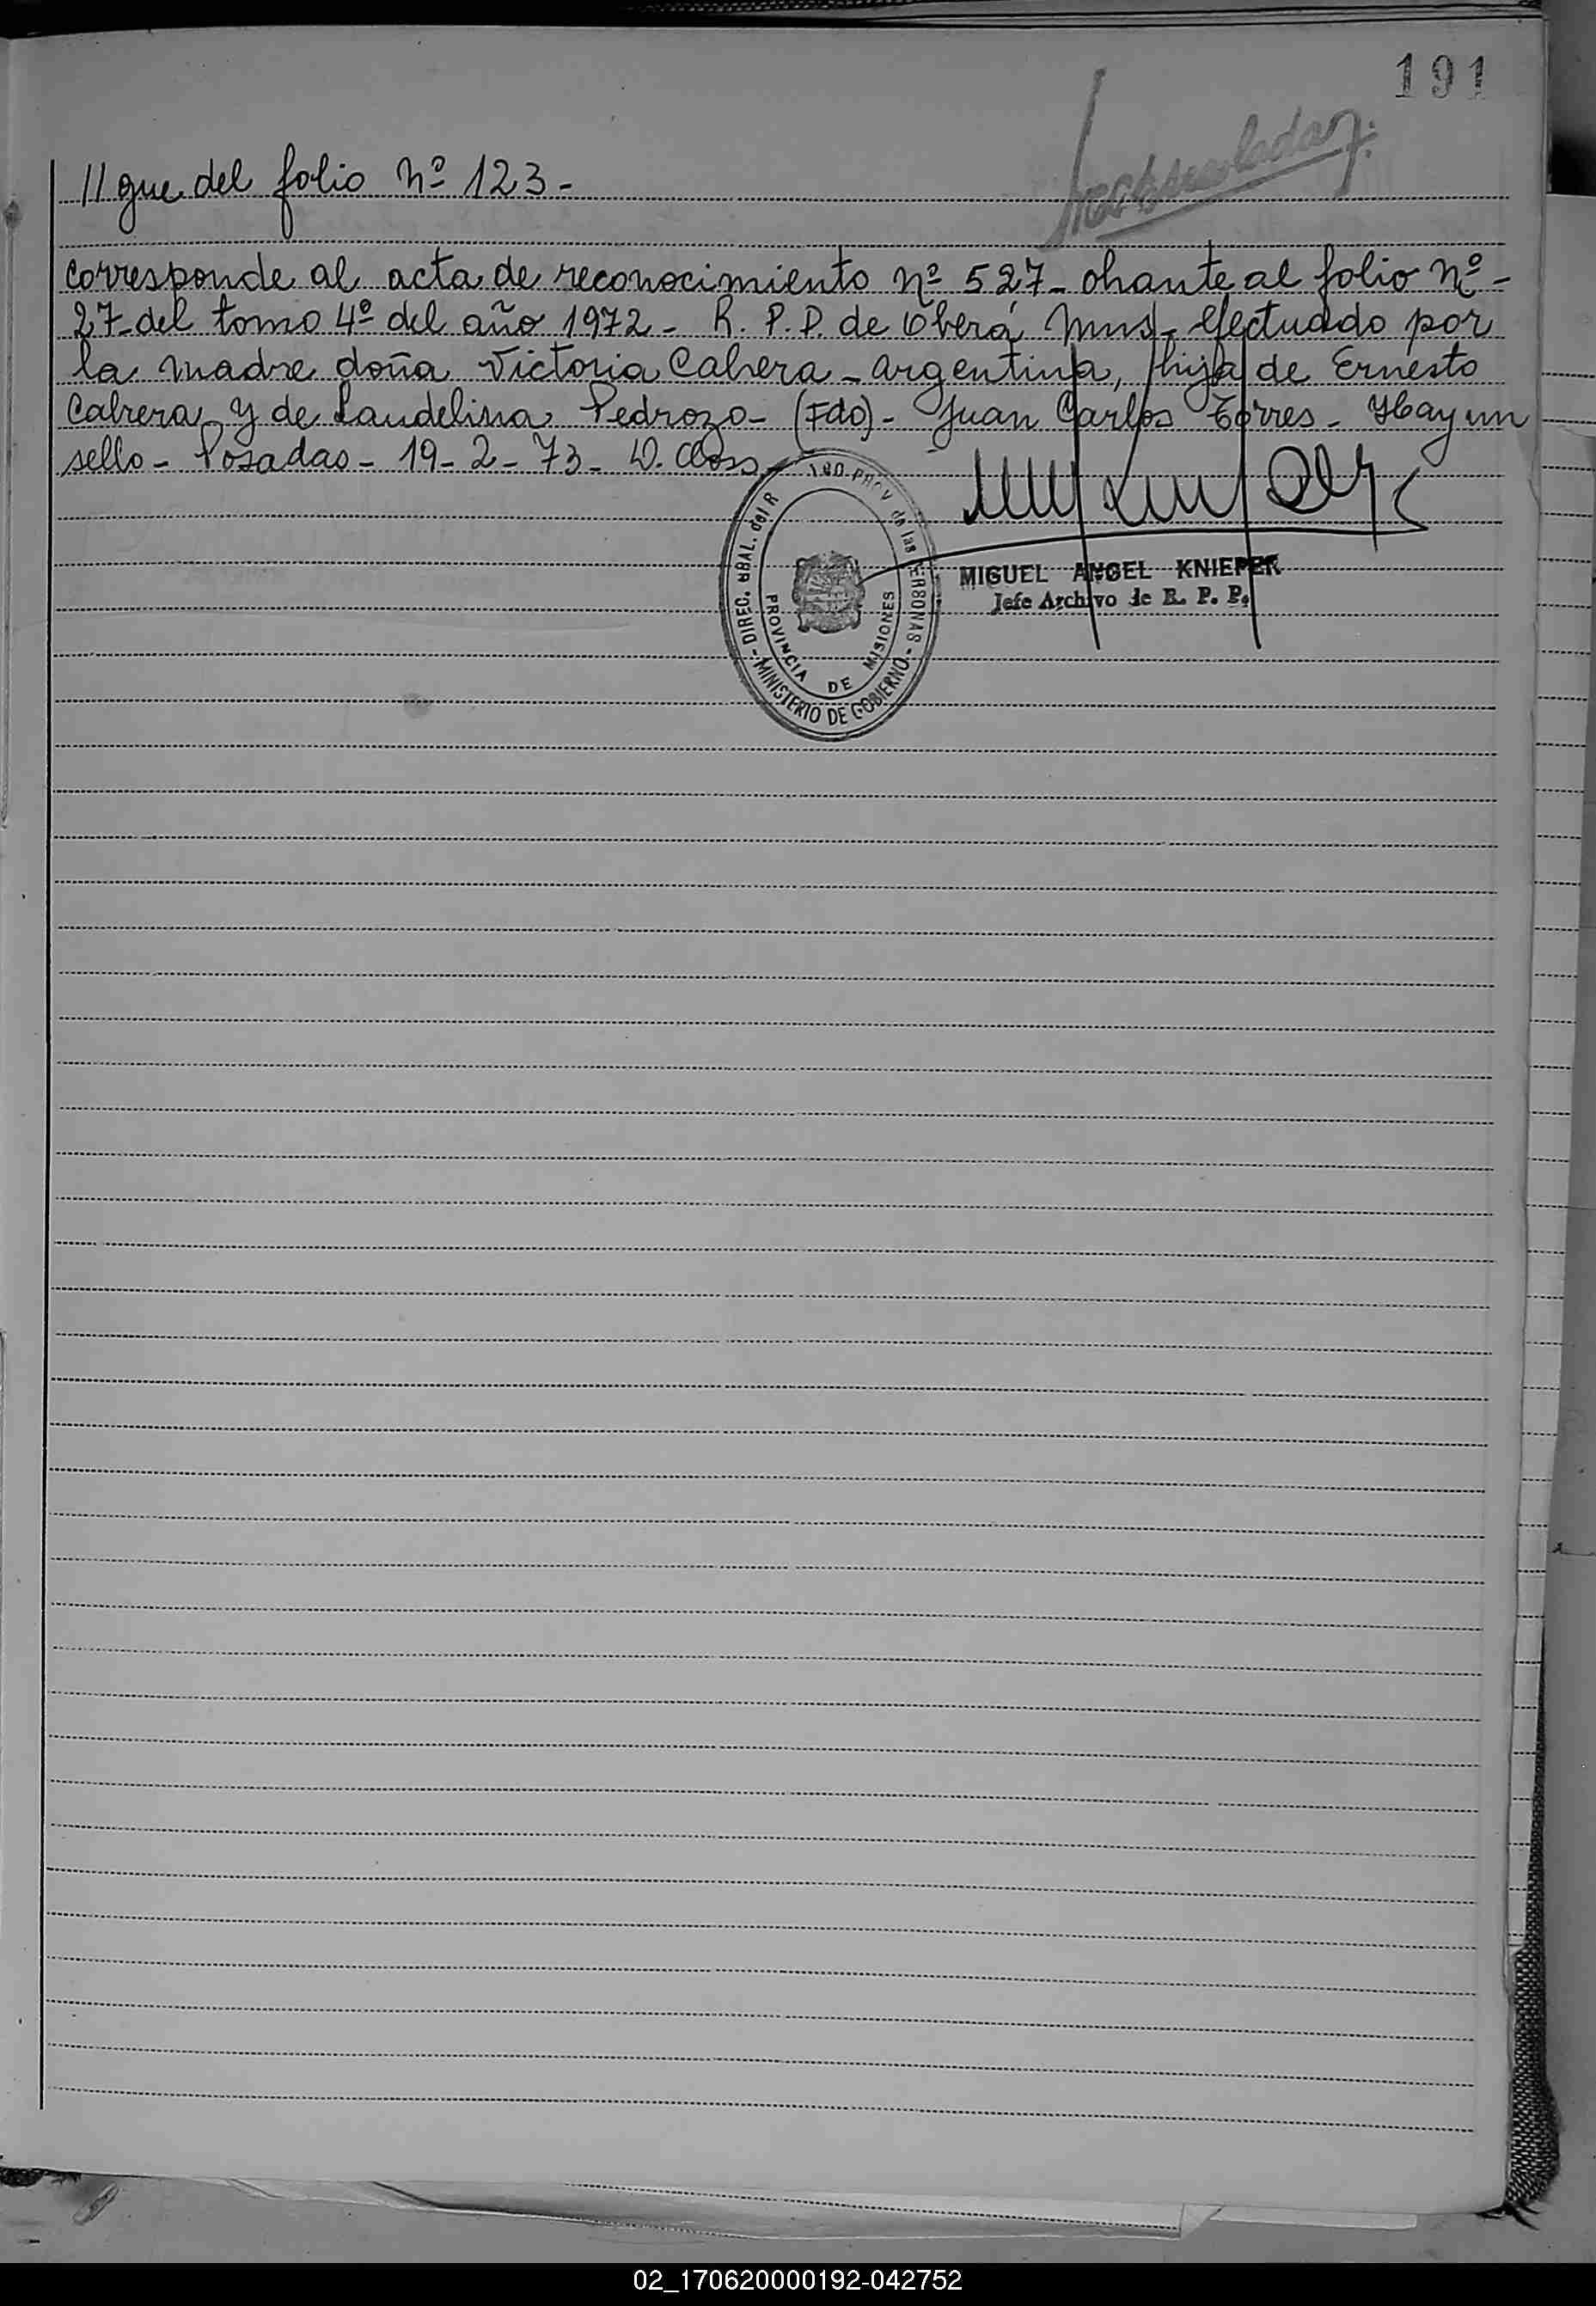 191
//gue del folio Nº 123-
corresponde al acta de reconocimiento nº 527- obrante al folio nº-
27-del tomo 4º del año 1972- R. P. P. de Oberá Mns- efectuado por
la madre doña Victoria Cabrera- argentina, hija de Ernesto
Cabrera y de Laudelina Pedrozo- (Fdo)- Juan Carlos Torres- Hay un
sello- Posadas- 19-2-73- D. Closs-
DIREC. GRAL. del R PROV de las PERSONAS - MINISTERIO DE GOBIERNO -
PROVINCIA DE MISIONES
MIGUEL ANGEL KNIEPER
Jefe Archivo de R. P. P.
02_170620000192-042752